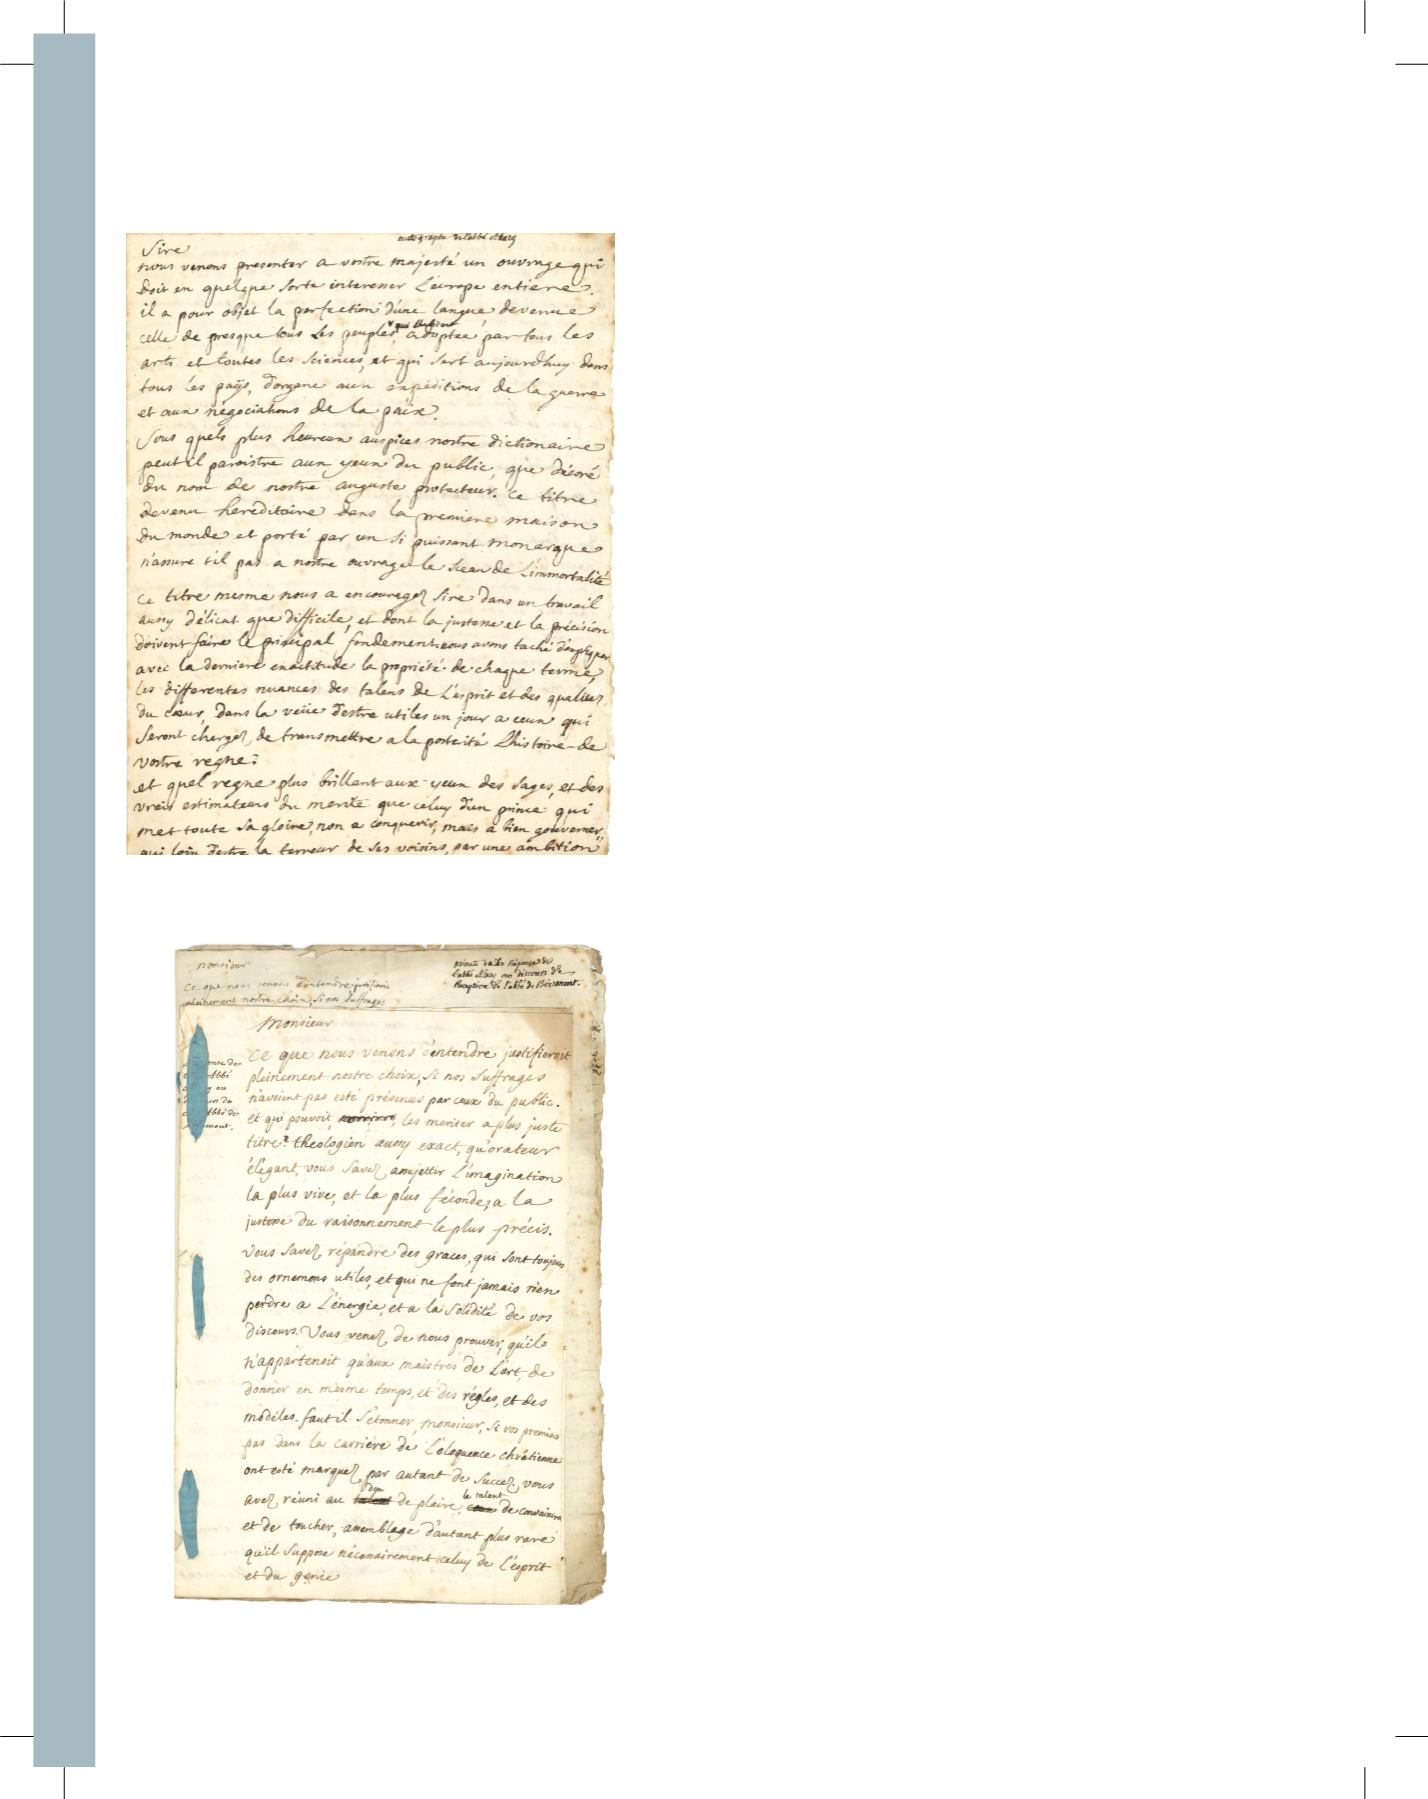 autographe de l'abbé Alary
Sire
nous venons presenter a vostre majesté un ouvrage qui
doit en quelque sorte interesser l'europe entiere.
il a pour objet la perfection d'une langue devenue
celle de presque tous les peuples, adoptée par tous les
arts et toutes les sciences, et qui sert aujourdhuy dans
tous les païs, d'organe aux expeditions de la guerre
et aux négociations de la paix.
Sous quels plus heureux auspices nostre dictionaire
peut il paroistre aux yeux du public, que décoré
du nom de nostre auguste protecteur. Ce titre
devenu hereditaire dans la premiere maison
du monde et porté par un si puissant monarque
n'assure t'il pas a nostre ouvrage le sceau de l'immortalité
Ce titre mesme nous a encouragez Sire dans un travail
aussy délicat que difficile, et dont la justesse et la précision
doivent faire le principal fondement. nous avons taché d'expliquer
avec la derniere exactitude la propriété de chaque terme,
les differentes nuances des talens de l'esprit et des qualitez
du cœur, dans la veüe d'estre utiles un jour a ceux qui
seront chargez de transmettre a la posterité l'histoire de
vostre regne.
et quel regne plus brillant aux yeux des sages, et des
vrais estimateurs du merite que celuy d'un prince qui
met toute sa gloire, non a conquerir, mais a bien gouverner,
qui loin d'estre la terreur de ses voisins, par une ambition
monsieur
Ce que nous venons d'entendre, justifieroit
pleinement nostre choix, si nos suffrages
minute de la Réponse de
l'abbé Alary au discours de
Réception de l'abbé de Boismont.
Monsieur
Ce que nous venons d'entendre justifieroit
pleinement nostre choix, si nos suffrages
n'avoient pas esté prévenus par ceux du public.
et qui pouvoit, monsieur, les meriter a plus juste
titre? theologien aussy exact, qu'orateur
élegant, vous savez assujettir l'imagination
la plus vive, et la plus féconde, a la
justesse du raisonnement le plus précis.
Vous savez répandre des graces, qui sont toujours
des ornemens utiles, et qui ne font jamais rien
perdre a l'énergie, et a la solidité de vos
discours. Vous venez de nous prouver, qu'il
n'appartenoit qu'aux maistres de l'art, de
donner en mesme temps, et des régles, et des
modéles. faut il s'étonner, monsieur, si vos premiers
pas dans la carriére de l'éloquence chrêtienne
ont esté marquez par autant de succez. vous
avez réuni au don de plaire, le talent de convaincre
et de toucher, assemblage d'autant plus rare
qu'il suppose nécessairement celuy de l'esprit
et du genie